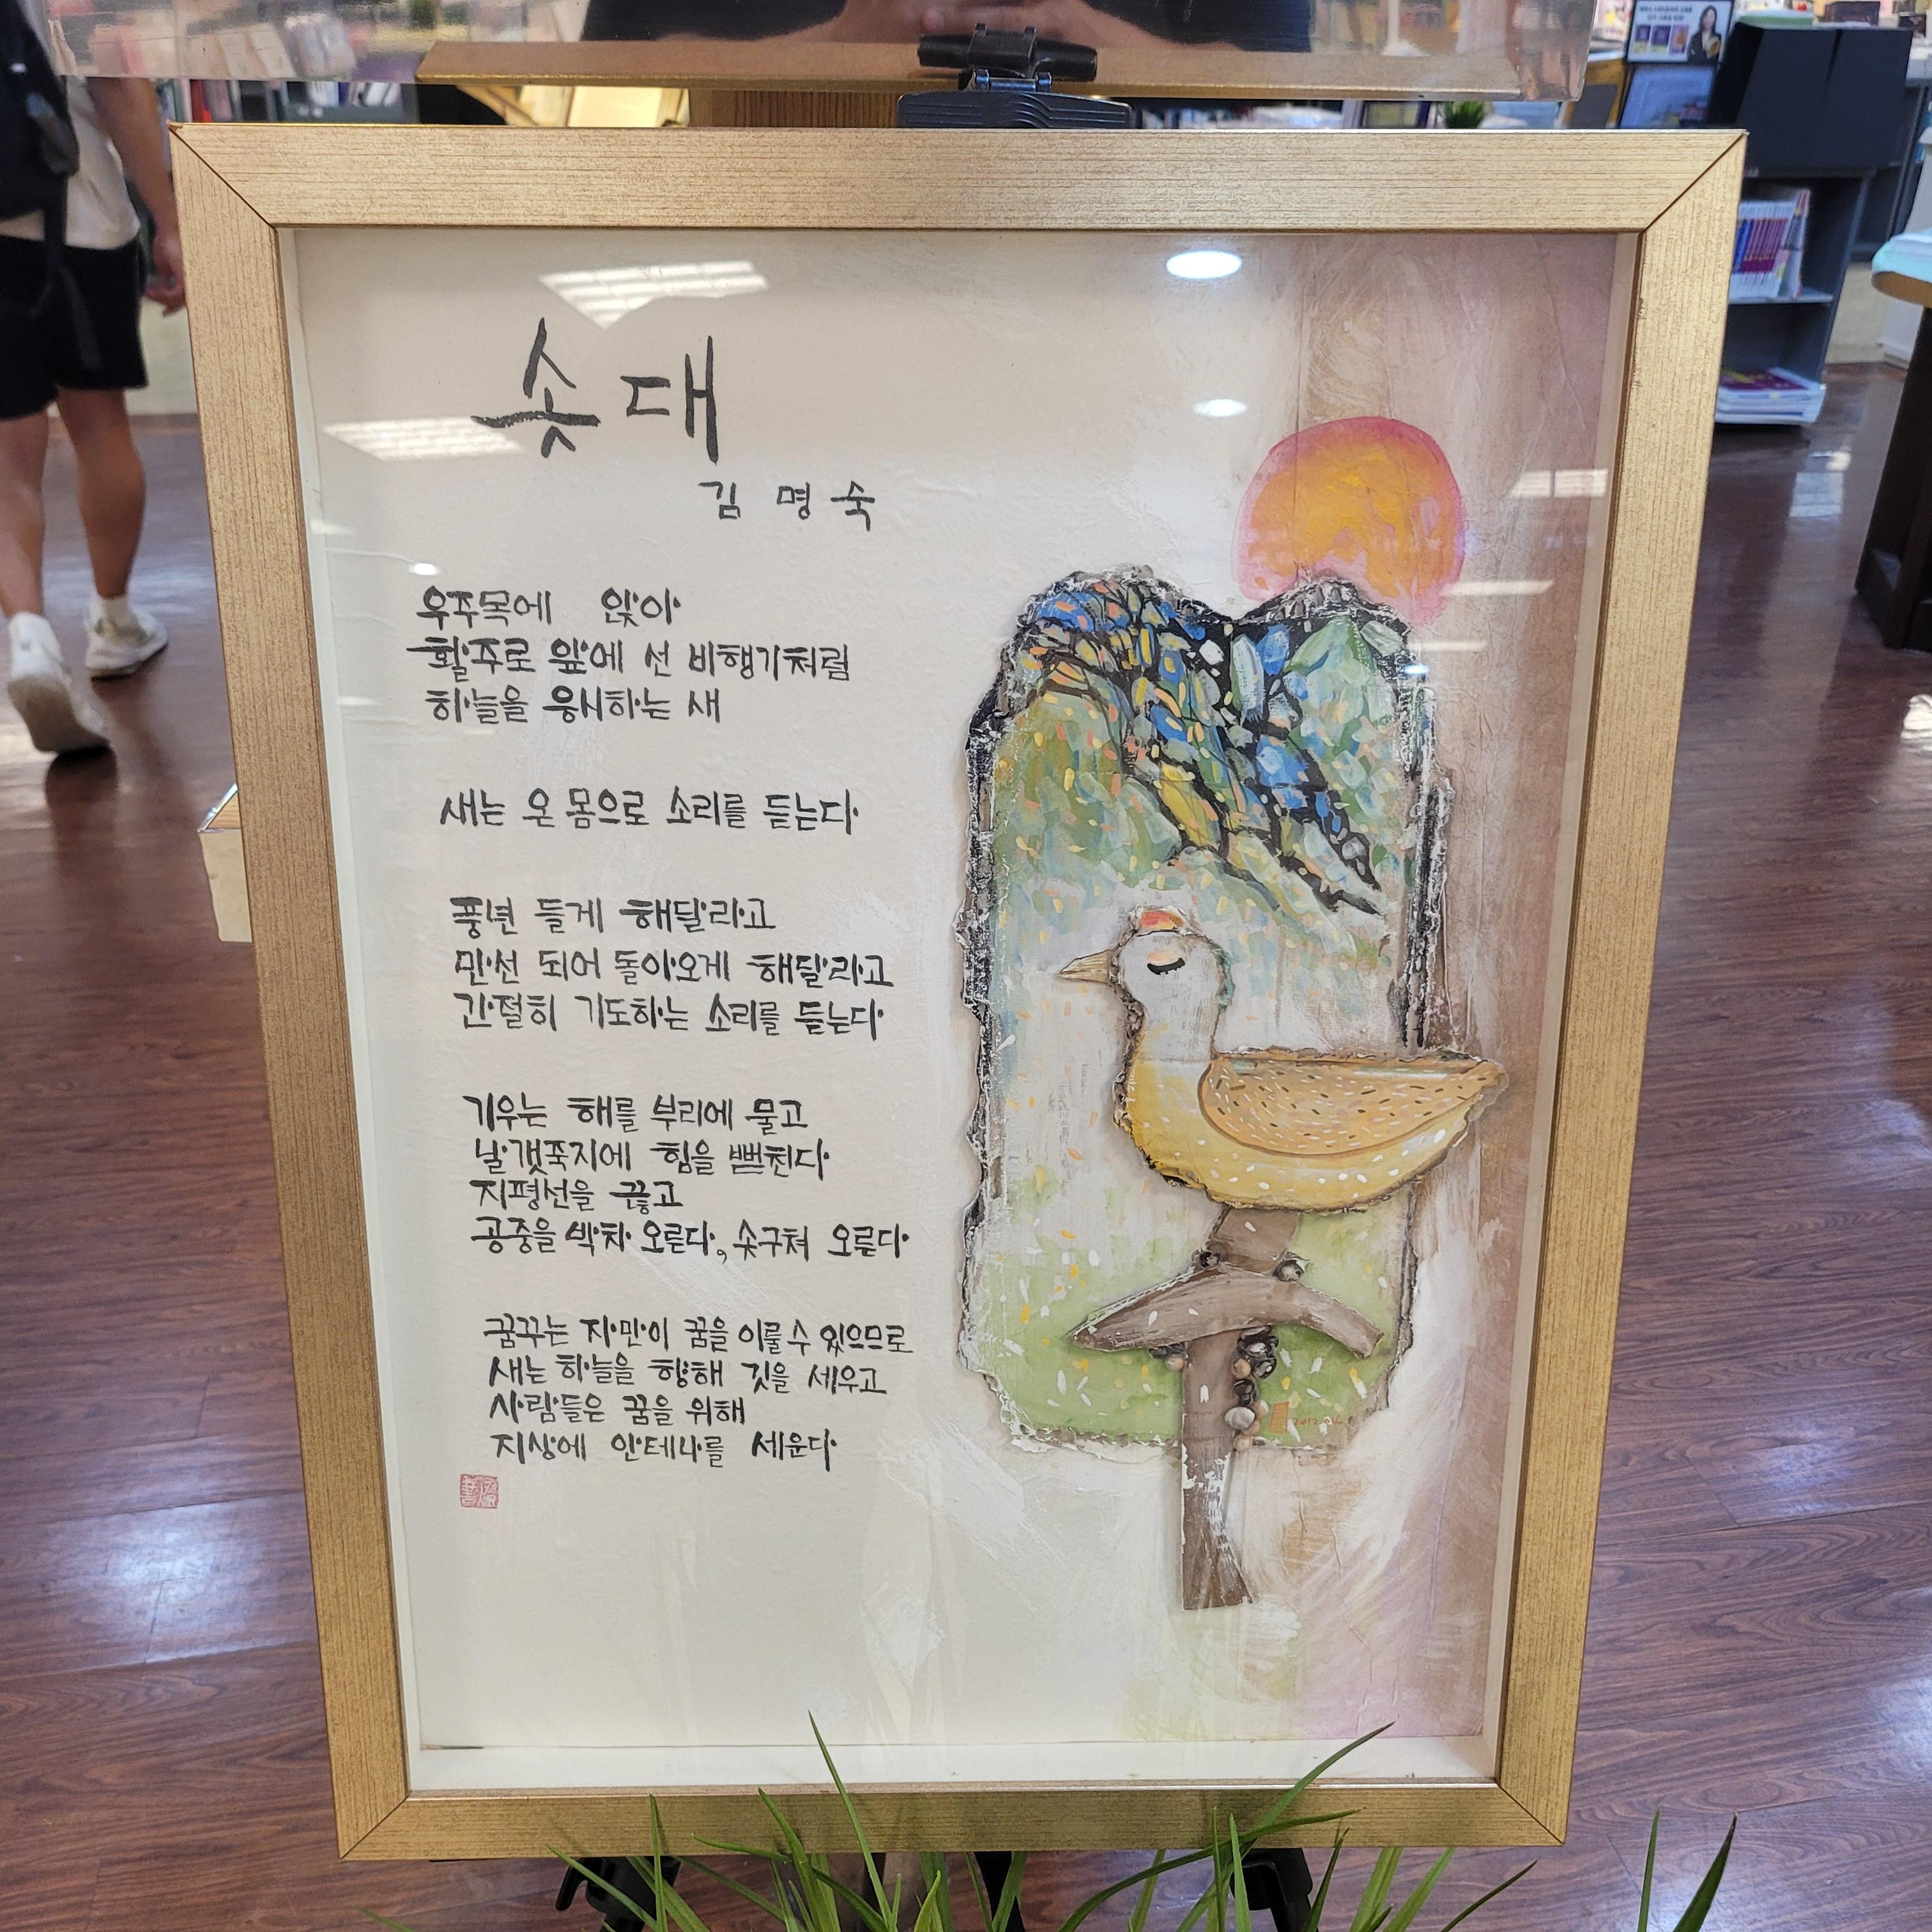 솟대
김 명 숙
우주목에 앉아
활주로 앞에 선 비행기처럼
하늘을 응시하는 새
새는 온 몸으로 소리를 듣는다
풍년 들게 해달라고
만선 되어 돌아오게 해달라고
간절히 기도하는 소리를 듣는다
기우는 해를 부리에 물고
날갯죽지에 힘을 뻗친다
지평선을 끊고
공중을 박차 오른다, 솟구쳐 오른다
꿈꾸는 자만이 꿈을 이룰 수 있으므로
새는 하늘을 향해 깃을 세우고
사람들은 꿈을 위해
지상에 안테나를 세운다